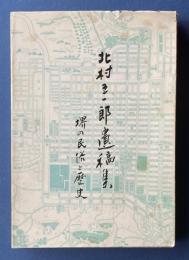 北村王一郎遺稿集
堺の民俗と歴史